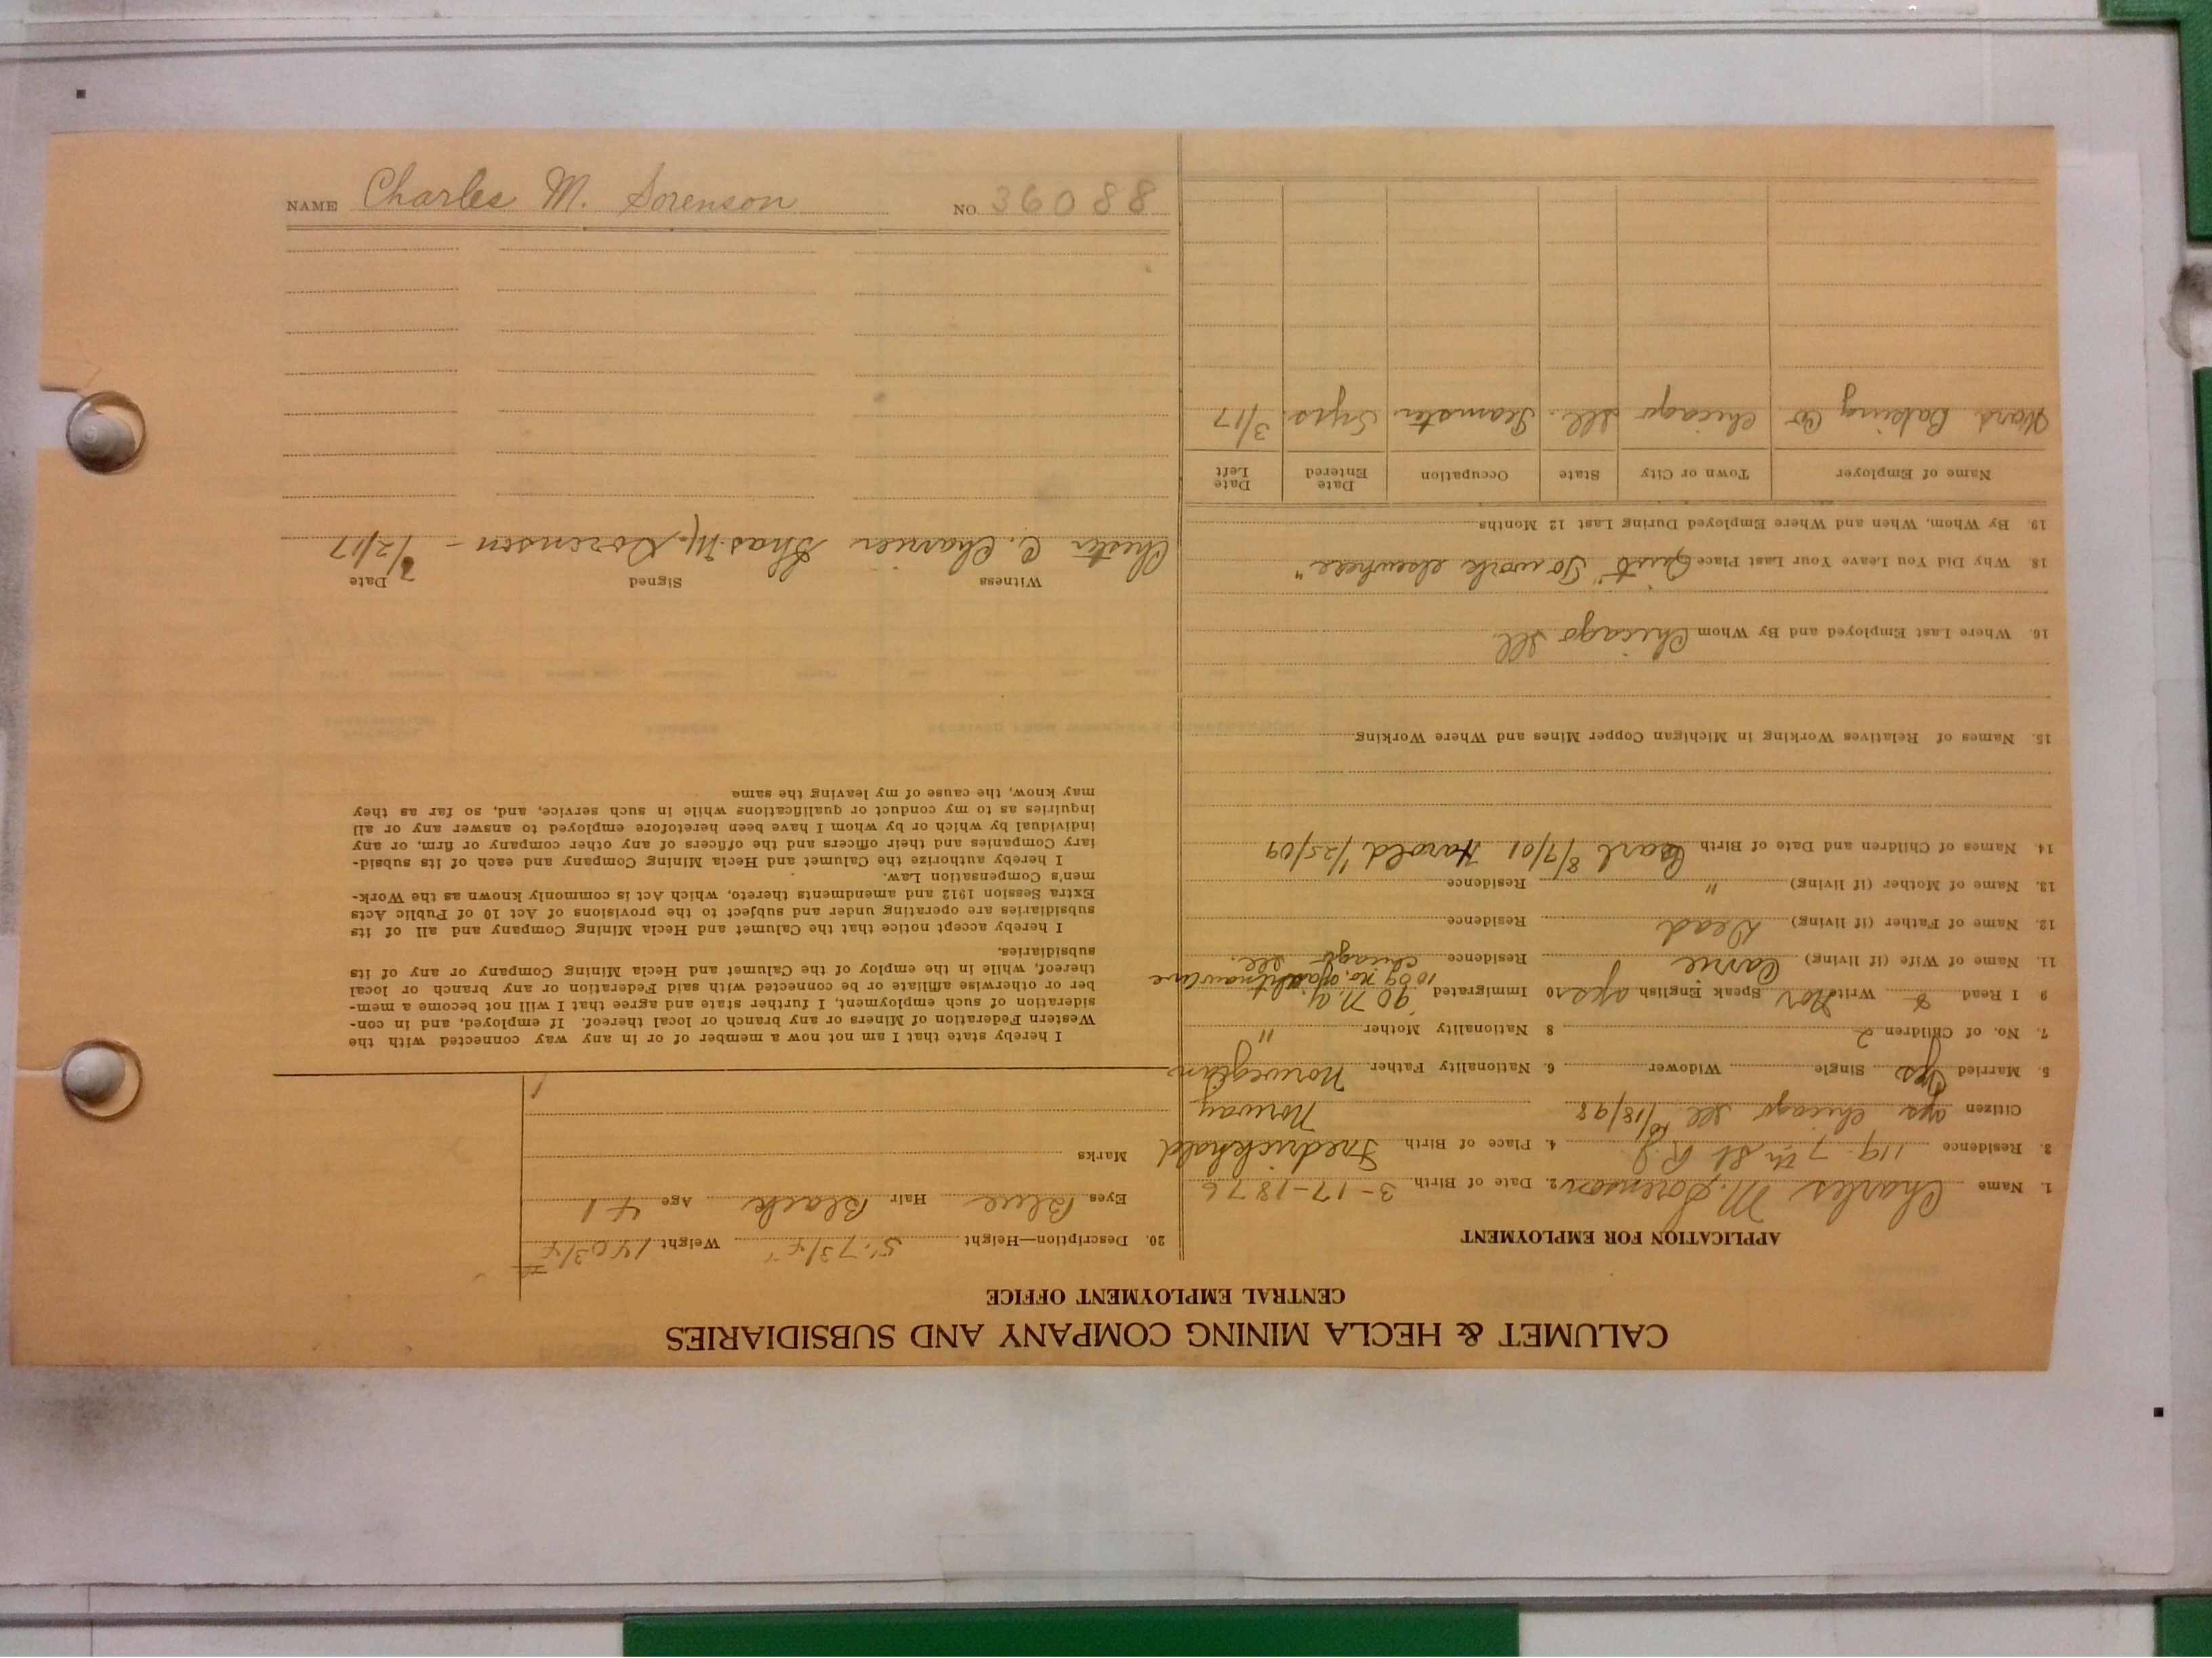 CALUMET & HECLA MINING COMPANY AND SUBSIDIARIES
CENTRAL EMPLOYMENT OFFICE
APPLICATION FOR EMPLOYMENT
1. Name Charles M. Sorenson 2. Date of Birth 3-17-1876
3. Residence 119 7th St 4. Place of Birth Fredrickhald
Norway
Citizen yes Chicago Ill 10/18/98
5. Married yes Single Widower 6. Nationality Father Norwegian
7. No. of Children 2 8 Nationality Mother "
9 I Read & Write Nor Speak English yes 10 Immigrated '90 N.Y.
11. Name of Wife (if living) Carrie Residence 1009 no.
Chicago Ill.
12. Name of Father (if living) Dead Residence
13. Name of Mother (if living) " Residence
14. Names of Children and Date of Birth Carl 8/7/01 Harold 1/25/09
15. Names of Relatives Working in Michigan Copper Mines and Where Working
16. Where Last Employed and By Whom Chicago Ill
18. Why Did You Leave Your Last Place Quit "To work elsewhere"
19. By Whom, When and Where Employed During Last 12 Months
Name of Employer Town or City State Occupation Date Entered Date Left
Ward Baking Co Chicago Ill. Teamster 3/17
20. Description—Height 5' 7 3/4" Weight 140 3/4 #
Eyes Blue Hair Black Age 41
Marks
I hereby state that I am not now a member of or in any way connected with the
Western Federation of Miners or any branch or local thereof. If employed, and in con-
sideration of such employment, I further state and agree that I will not become a mem-
ber or otherwise affiliate or be connected with said Federation or any branch or local
thereof, while in the employ of the Calumet and Hecla Mining Company or any of its
subsidiaries.
I hereby accept notice that the Calumet and Hecla Mining Company and all of its
subsidiaries are operating under and subject to the provisions of Act 10 of Public Acts
Extra Session 1912 and amendments thereto, which Act is commonly known as the Work-
men's Compensation Law.
I hereby authorize the Calumet and Hecla Mining Company and each of its subsid-
iary Companies and their officers and the officers of any other company or firm, or any
individual by which or by whom I have been heretofore employed to answer any or all
inquiries as to my conduct or qualifications while in such service, and, so far as they
may know, the cause of my leaving the same
Witness Signed Date
Chester C. Charrier Chas. M. Sorenson - /2/17
NAME Charles M. Sorenson NO 36088